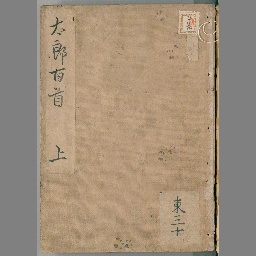 太郎百首 上
東三十